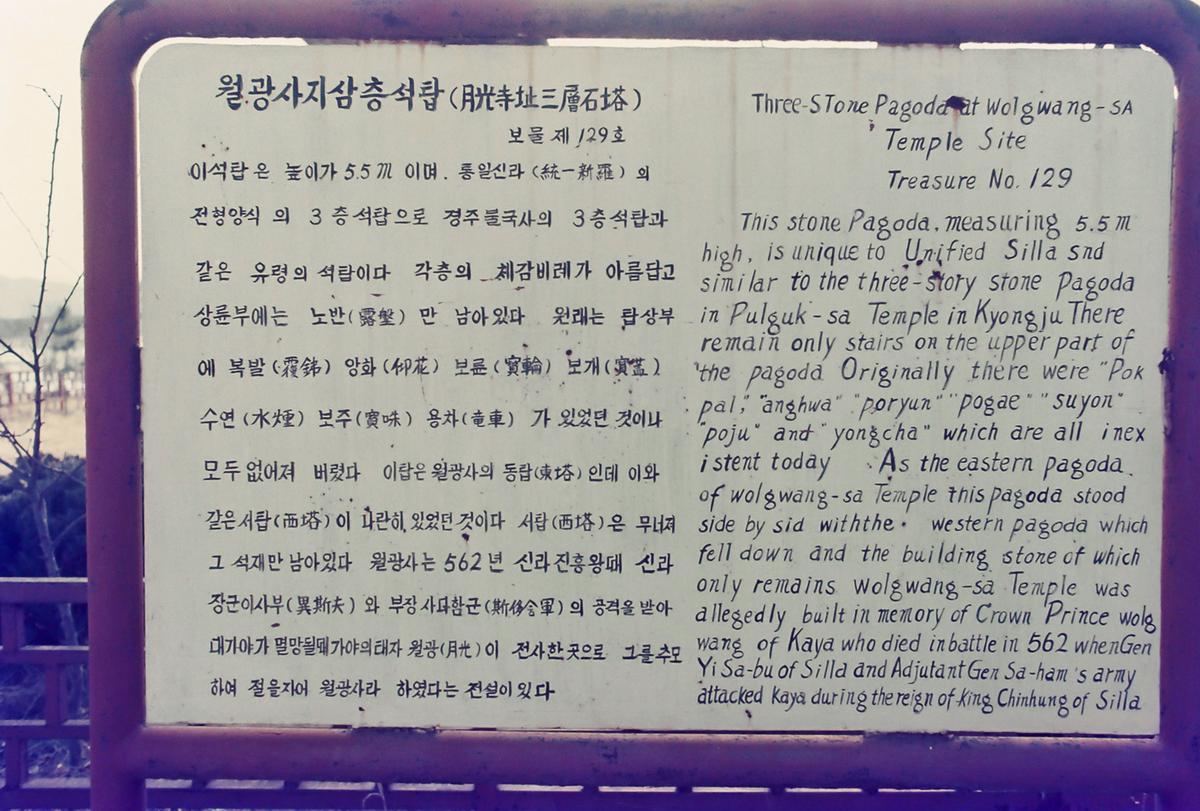 월광사지삼층석탑(月光寺址三層石塔)
보물 제 129호
이석탑은 높이가 5.5m 이며. 통일신라 (統一新羅) 의
전형양식 의 3 층석탑으로 경주불국사의 3층석탑과
같은 유령의 석탑이다 각층의 체감비례가 아름답고
상륜부에는 노반(露盤) 만 남아있다 원래는 탑상부
에 복발(覆鉢) 앙화(仰花) 보륜(寶輪) 보개(寶蓋)
수연(水煙) 보주(寶味) 용차(竜車) 가 있었던 것이나
모두 없어져 버렸다 이탑은 월광사의 동탑(東塔)인데 이와
같은서탑(西塔)이 나란히 있었던 것이다 서탑(西塔)은 무너져
그 석재만 남아있다 월광사는 562년 신라진흥왕때 신라
장군이사부(異斯夫) 와 부장 사다함군 의 공격을 받아
대가야가 멸망될때가야의태자 월광(月光)이 전사한 곳으로 그를추모
하여 절을지어 월광사라 하였다는 전설이 있다
Three-STone Pagoda at Wolgwang-SA
Temple Site
Treasure No. 129
This stone Pagoda, measuring 5.5m
high, is unique to Unified Silla snd
similar to the three-story stone Pagoda
in Pulguk-sa Temple in Kyongju There
remain only stairs on the upper part of
the pagoda Originally there were "Pok
pal," "anghwa" "poryun" "pogae" "suyon"
"poju" and "yongcha" which are all inex
istent today As the eastern pagoda
of wolgwang-sa Temple this pagoda stood
side by sid withthe western pagoda which
fell down and the building stone of which
only remains wolgwang-sa Temple was
allegedly built in memory of Crown Prince wolg
wang of Kaya who died inbattle in 562 whenGen
Yi Sa-bu of Silla and Adjutant Gen Sa-ham's army
attacked Kaya during the reign of king Chinhung of Silla